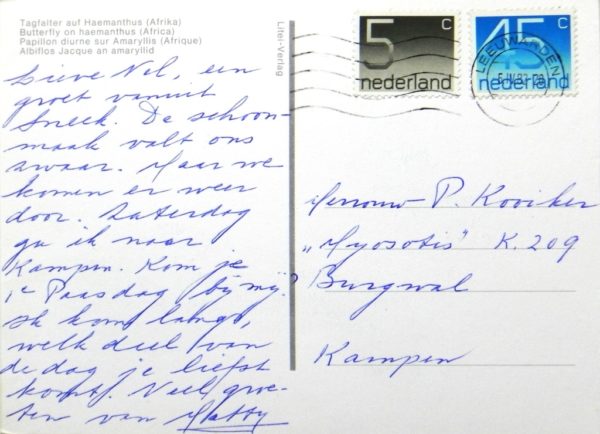 Tagfalter auf Haemanthus (Afrika)
Butterfly on haemanthus (Africa)
Papillon diurne sur Amaryllis (Afrique)
Albiflos Jacque an amaryllid
Liter-Verlag
5 c
nederland
45 c
nederland
LEEUWARDEN
Lieve Nel, een
groet vanuit
Sneek. De schoon-
maak valt ons
zwaar. Maar we
komen er weer
door. Zaterdag
ga ik naar
Kampen. Kom je
1e Paasdag bij mij.
Ik kom langs,
welk deel van
de dag je liefst
komt. Veel groe-
ten van Matty
Mevrouw P. Kooiker
„Myosotis" K. 209
Burgwal
Kampen